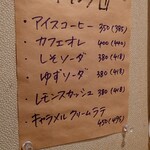 ・アイスコーヒー 350(385)
・カフェオレ 400(440)
・しそソーダ 380(418)
・ゆずソーダ 380(418)
・レモンスカッシュ 380(418)
・キャラメルクリームラテ
450(495)